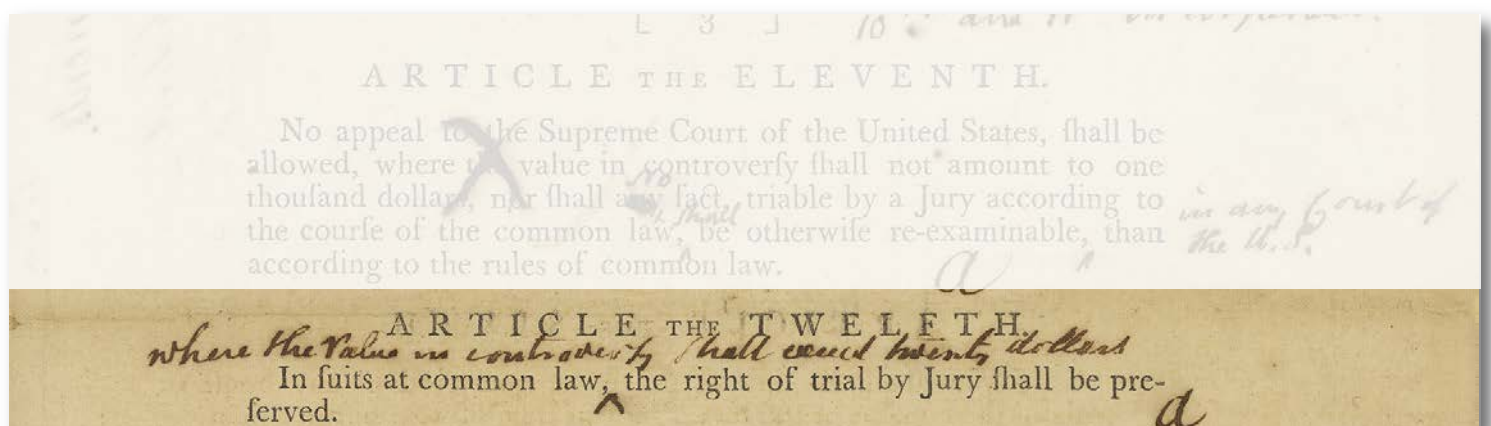 [ 3 ]
ARTICLE THE ELEVENTH.
No appeal to the Supreme Court of the United States, ſhall be
allowed, where the value in controverſy ſhall not amount to one
thouſand dollars, nor ſhall any fact, triable by a Jury according to
no
in any Court of
ſhall
the courſe of the common law, be otherwiſe re-examinable, than
the U.S.
according to the rules of common law.
a
ARTICLE THE TWELFTH.
where the value in controverſy ſhall exceed twenty dollars
In ſuits at common law, the right of trial by Jury ſhall be pre-
ſerved.
a